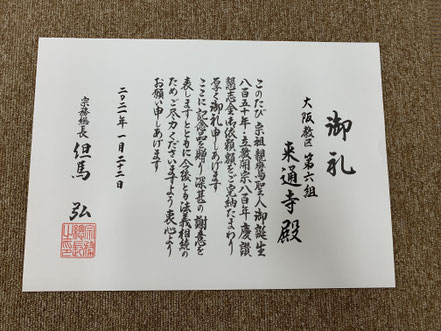 御礼
大阪教区 第六組
来通寺 殿
このたび 宗祖親鸞聖人御誕生
八百五十年・立教開宗八百年慶讃
懇志金御依頼額をご完納たまわり
厚く御礼申しあげます
ここに記念品を贈り深甚の謝意を
表しますとともに今後とも法義相続の
ためご尽力くださいますよう衷心より
お願い申しあげます
二〇二一年一月二十二日
宗務総長 但馬 弘
宗務總長之印